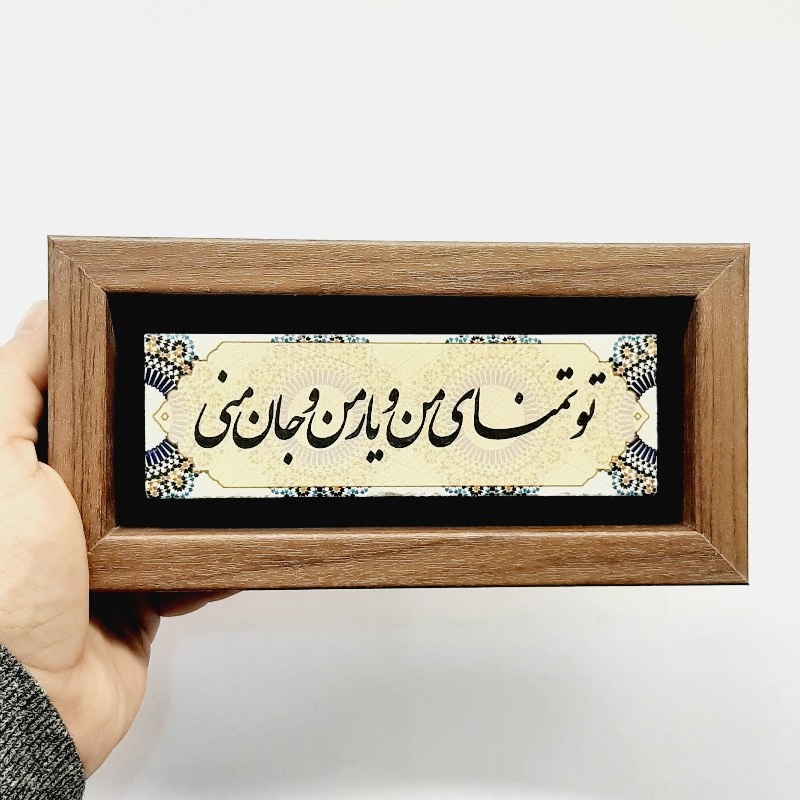 تو تمنای من و یار من و جان منی